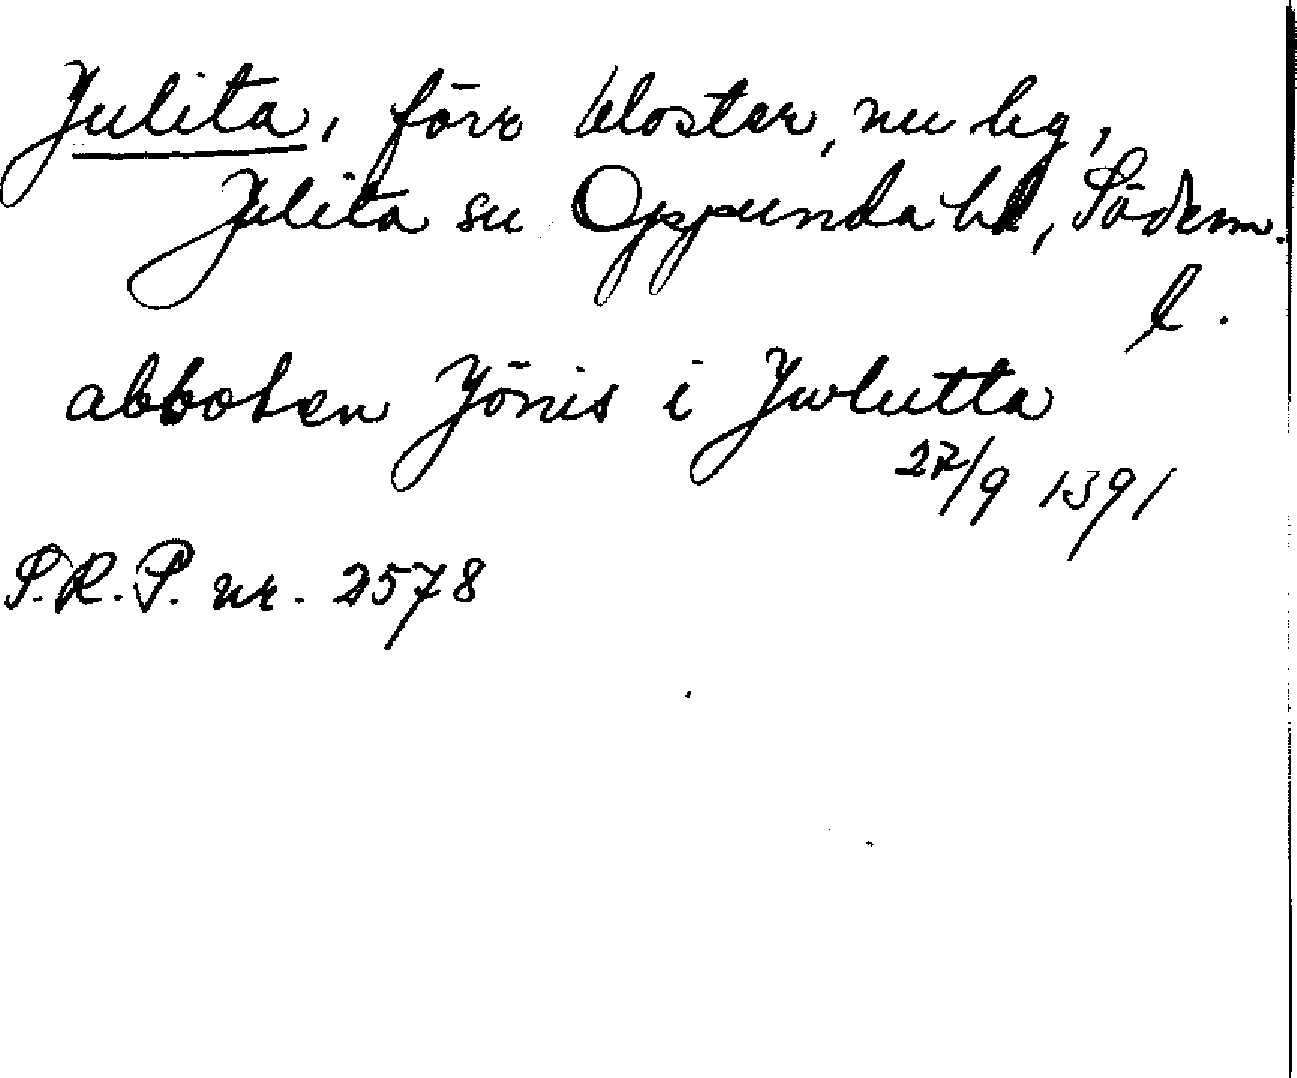 Julita, förr kloster, nu hg,
Julita sn Oppunda hd, Söderm.
l.
abboten Jönis i Jwlutta
27/9 1391
S.R.P. nr. 2578